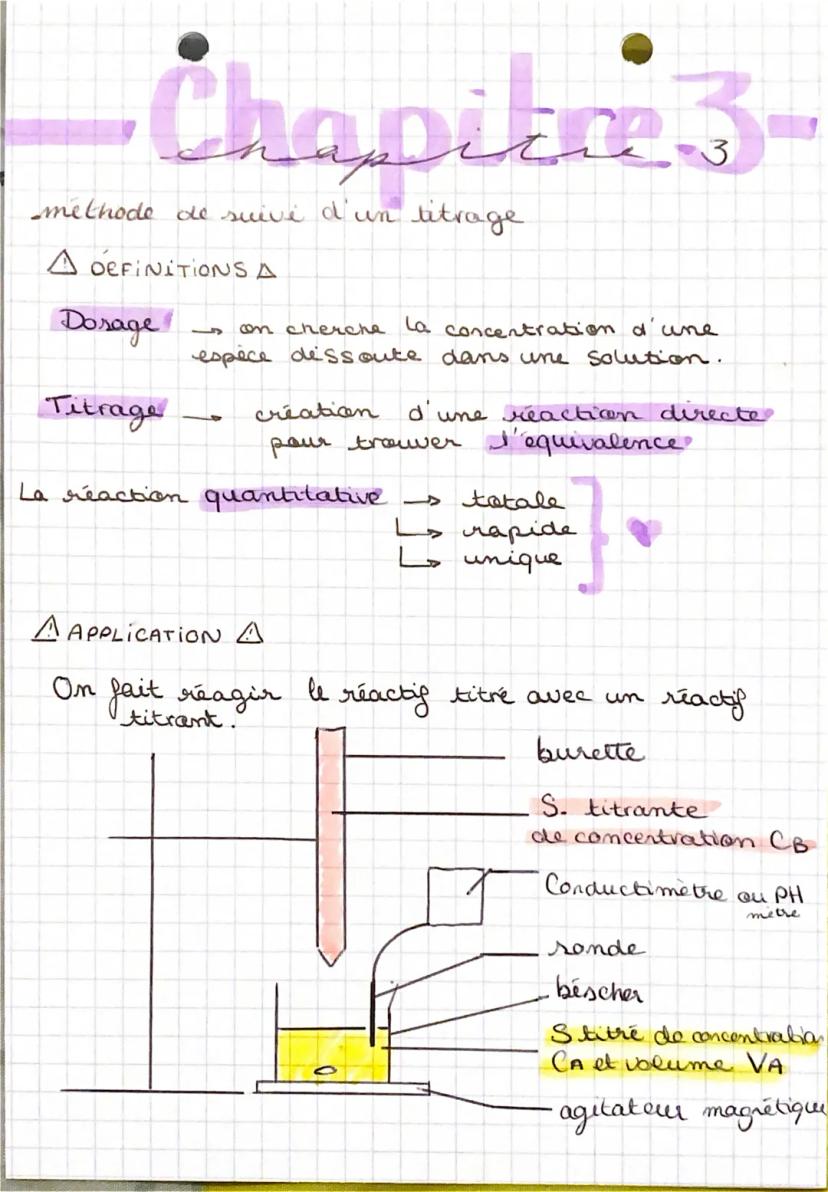 Chapitre 3
chapitre 3
méthode de suivi d'un titrage
⚠ DÉFiNiTiONS ⚠
Dosage → on cherche la concentration d'une
espèce dissoute dans une solution.
Titrage → création d'une réaction directe
pour trouver l'équivalence
La réaction quantitative → totale
↳ rapide
↳ unique
⚠ APPLiCATiON ⚠
On fait réagir le réactif titré avec un réactif
titrant.
burette
S. titrante
de concentration CB
Conductimètre ou PH
mètre
sonde
béscher
S titré de concentration
CA et volume VA
agitateur magnétique